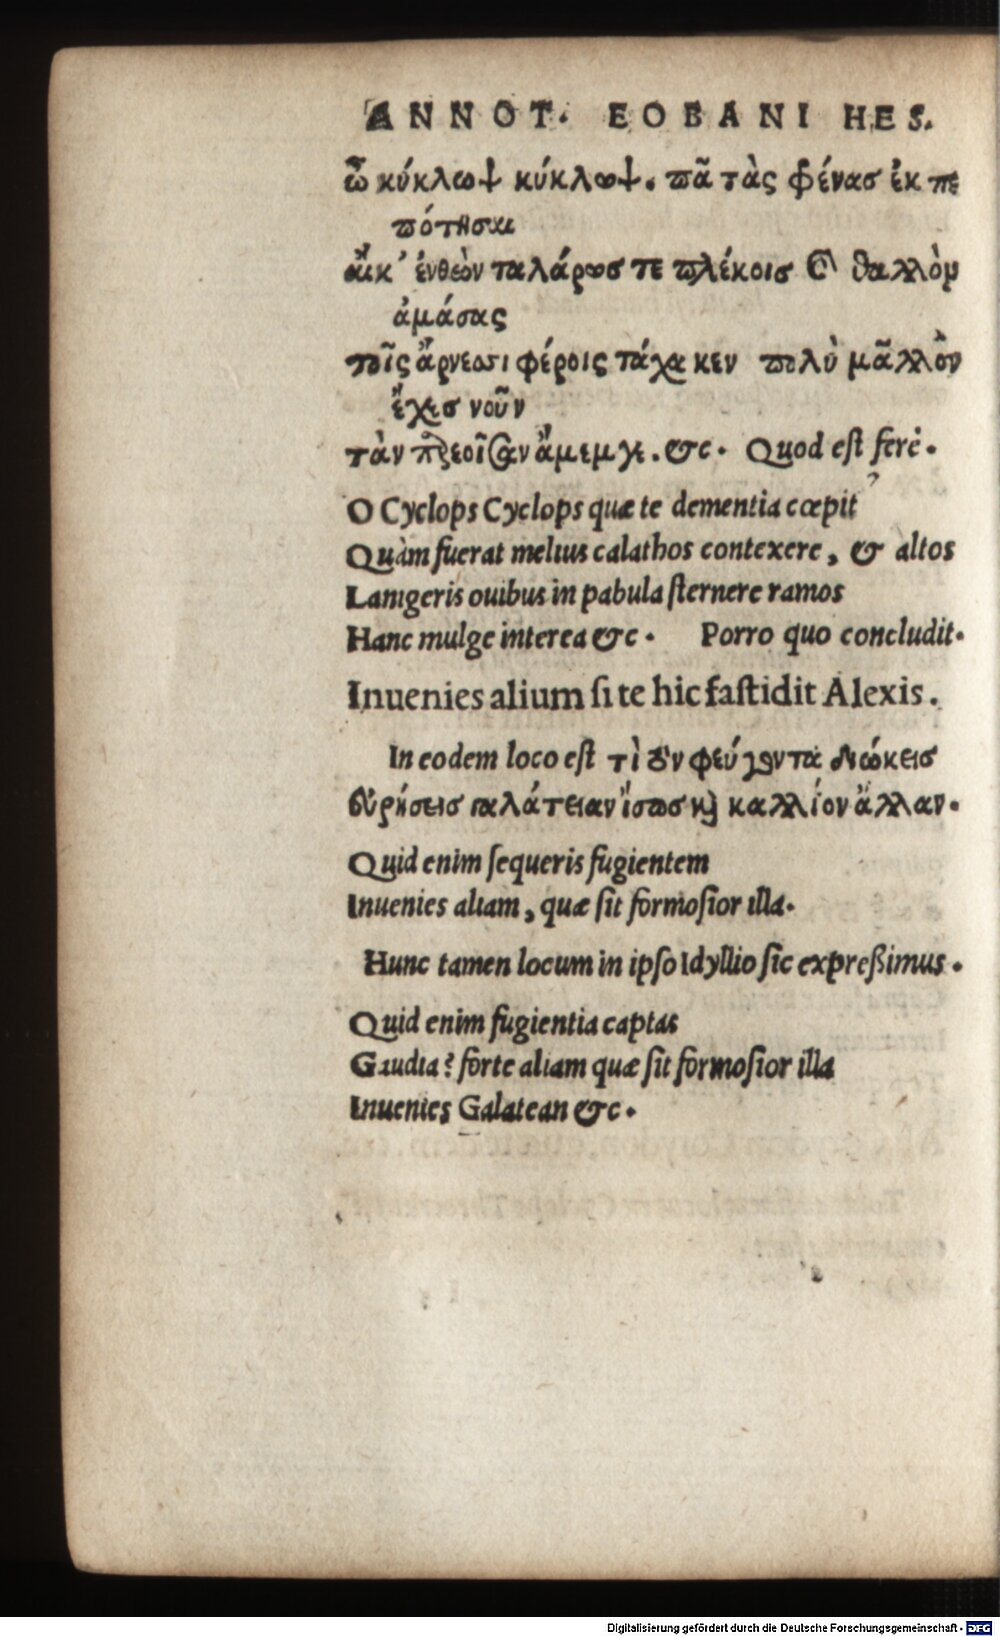 ANNOT. EOBANI HES.
ὦ κύκλωψ κύκλωψ. πᾶ τὰς φένασ ἐκ πε
πότησαι
αἴκ' ἐνθεὼν ταλάρωσ τε πλέκοισ καὶ θαλλὸν
ἀμάσας
τοῖς ἄρνεσσι φέροις τάχα κεν πολὺ μᾶλλὸν
ἔχεισ νοῦν
τὰν ἄμεμγε. &c. Quod est ferè.
O Cyclops Cyclops quæ te dementia cœpit?
Quàm fuerat melius calathos contexere, & altos
Lanigeris ouibus in pabula sternere ramos
Hanc mulge interea &c. Porro quo concludit.
Inuenies alium si te hic fastidit Alexis.
In eodem loco est τὶ ὃν φεύγοντα διώκεισ
εὑρήσεισ γαλάτειαν ἴσωσ καὶ καλλίον ἄλλαν.
Quid enim sequeris fugientem
Inuenies aliam, quæ sit formosior illa.
Hunc tamen locum in ipso Idyllio sic expreßimus.
Quid enim fugientia captas
Gaudia? forte aliam quæ sit formosior illa
Inuenies Galatean &c.
Digitalisierung gefördert durch die Deutsche Forschungsgemeinschaft - DFG